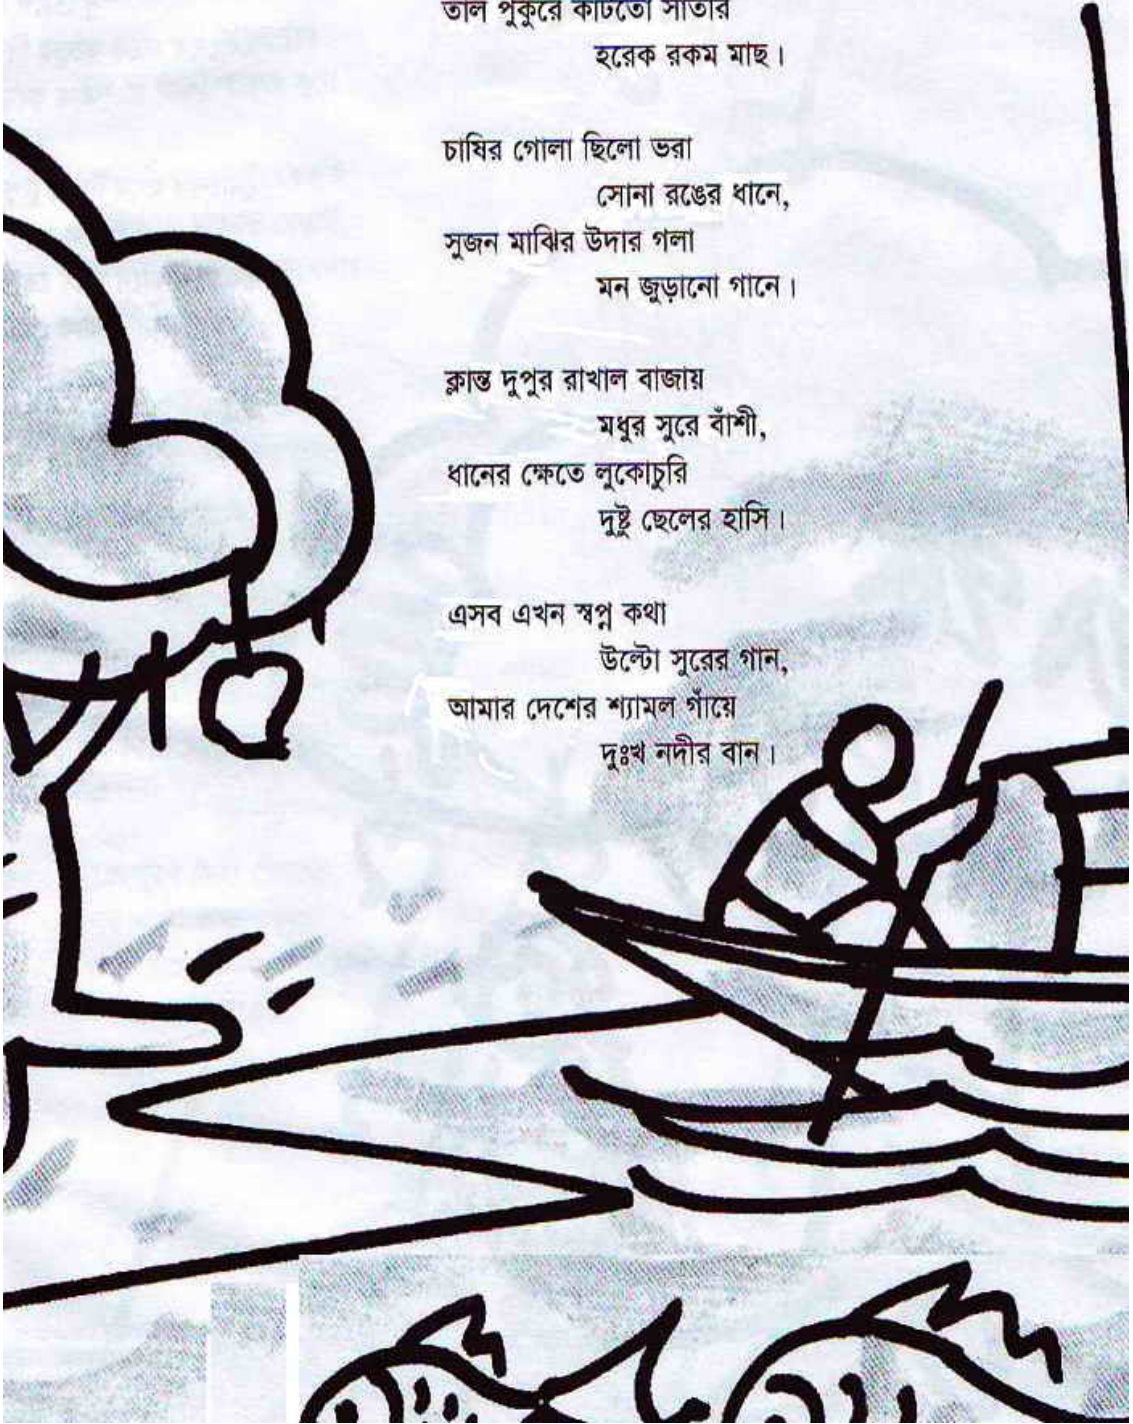 তাল পুকুরে কাটতো সাঁতার
হরেক রকম মাছ।
চাষির গোলা ছিলো ভরা
সোনা রঙের ধানে,
সুজন মাঝির উদার গলা
মন জুড়ানো গানে।
ক্লান্ত দুপুর রাখাল বাজায়
মধুর সুরে বাঁশী,
ধানের ক্ষেতে লুকোচুরি
দুষ্টু ছেলের হাসি।
এসব এখন স্বপ্ন কথা
উল্টো সুরের গান,
আমার দেশের শ্যামল গাঁয়ে
দুঃখ নদীর বান।